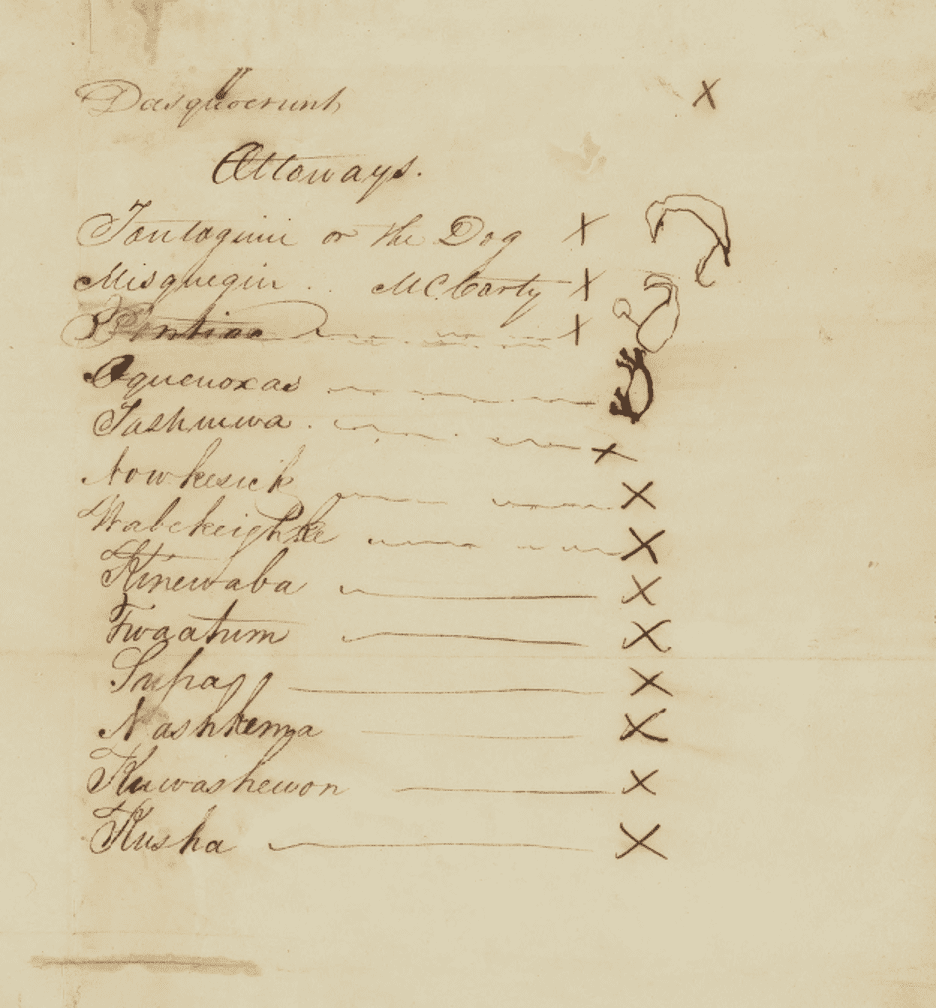 Dasquoerunt X
Ottoways.
Tontagimi or the Dog X
Misquegin .. McCarty X
Pontiac X
Oquenoxas
Tashmwa . X
Nowkesick X
Wabekeighke X
Kinewaba X
Twaatum X
Supay X
Nashkema X
Kuwashewon X
Kusha X